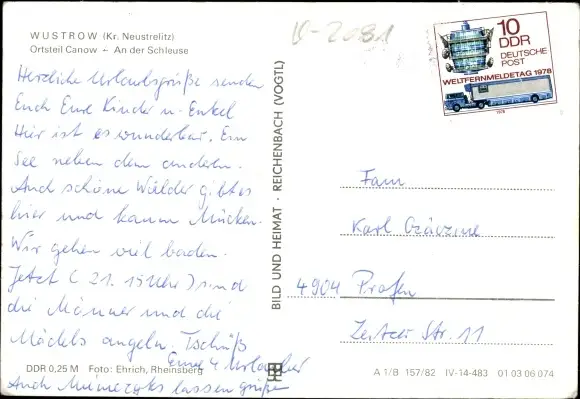 WUSTROW (Kr. Neustrelitz)
Ortsteil Canow – An der Schleuse
Herzliche Urlaubsgrüße senden
Euch Eure Kinder u. Enkel
Hier ist es wunderbar. Ein
See neben dem anderen.
Auch schöne Wälder gibt es
hier und kaum Mücken.
Wir gehen viel baden.
Jetzt (21.15 Uhr) sind
die Männer und die
Mädels angeln. Tschüß
Eure 4 Urlauber
Auch lassen grüßen
DDR 0,25 M Foto: Ehrich, Rheinsberg
BILD UND HEIMAT · REICHENBACH (VOGTL)
IV-2081
10
DDR
DEUTSCHE
POST
WELTFERNMELDETAG 1978
1978
Fam
Karl
4904 Profen
Zeitzer Str. 11
A 1/B 157/82 IV-14-483 01 03 06 074